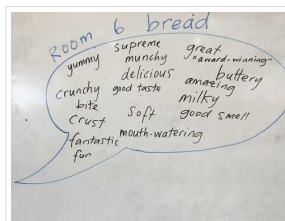 Room 6 bread
yummy supreme great
munchy "award-winning"
delicious buttery
crunchy good taste amazing
bite milky
crust soft good smell
fantastic mouth-watering
fun